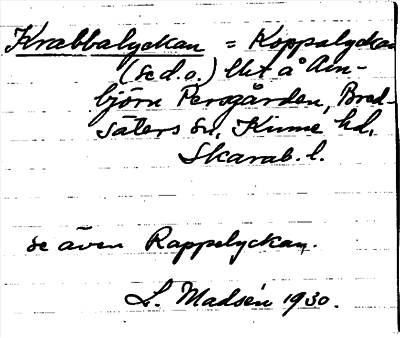 Krabbalyckan = Koppalyckan
(se d.o.) lht å Arn-
björn Persgården, Bred-
säters sn, Kinne hd,
Skarab. l.
se även Rappelyckan.
L. Madsén 1930.